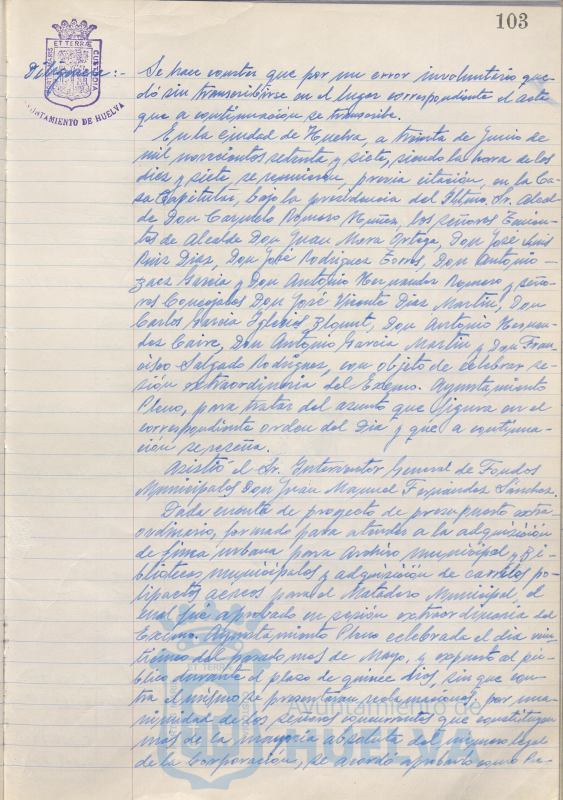 103
PORTUS MARIS ET TERRAE CUSTODIA
AYUNTAMIENTO DE HUELVA
Diligencia:- Se hace constar que por un error involuntario que-
dó sin transcribirse en el lugar correspondiente el acta
que a continuación se transcribe.
En la Ciudad de Huelva, a treinta de Junio de
mil novecientos setenta y siete, siendo la hora de las
diez y siete se reunieron, previa citación, en la Ca-
sa Capitular, bajo la presidencia del Iltmo. Sr. Alcal-
de Don Carmelo Romero Núñez, los señores Tenien-
tes de Alcalde Don Juan Mora Ortega, Don José Luis
Ruiz Díaz, Don José Rodríguez Torres, Don Antonio
García y Don Antonio Hernández Romero y seño-
res Concejales Don José Vicente Díaz Martín, Don
Carlos García Iglesias, Don Antonio Hernán-
dez Don Antonio García Martín y Don Fran-
cisco Salgado Rodríguez, con objeto de celebrar se-
sión extraordinaria del Excmo. Ayuntamiento
Pleno, para tratar del asunto que figura en el
correspondiente orden del Día y que a continua-
ción se reseña.
Asistió el Sr. Interventor General de Fondos
Municipales Don Juan Manuel Fernández Sánchez.
Dada cuenta de proyecto de presupuesto extra-
ordinario, formado para atender a la adquisición
de finca urbana para Archivo municipal y Bi-
bliotecas municipales y adquisición de carriles po-
lipastos aéreos para el Matadero Municipal el
cual fué aprobado en sesión extraordinaria del
Excmo. Ayuntamiento Pleno celebrada el día vein-
del pasado mes de Mayo, y expuesto al pú-
blico durante el plazo de quince días, sin que con-
tra el mismo se presentaran reclamaciones, por una-
nimidad de los señores concurrentes que constituyen
más de la mayoría absoluta del número legal
de la Corporación, se acordó aprobarlo como Pre-
Ayuntamiento de
HUELVA